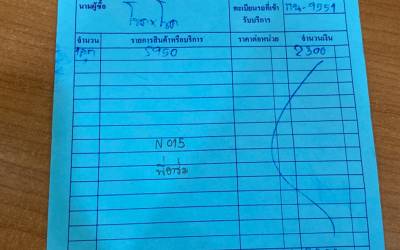 นามผู้ซื้อ โชคxโชค ทะเบียนรถที่เข้ารับบริการ กน-9551
จำนวน รายการสินค้าหรือบริการ ราคาต่อหน่วย จำนวนเงิน
1ลูก 5950 2300
N 015